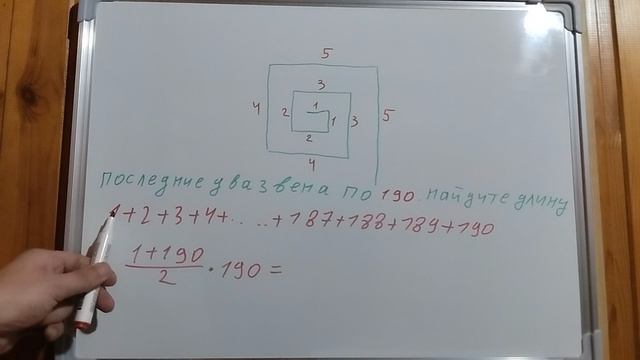 5
3
4 2 1 1 3 5
2
4
последние два звена по 190. найдите длину
1+2+3+4+. . . .+187+188+189+190
1+190
2
· 190 =